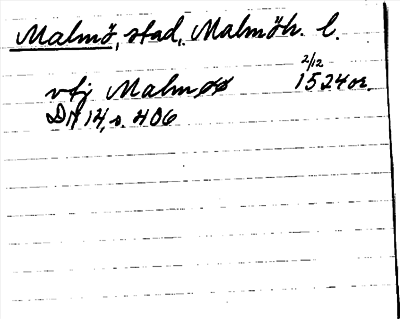 Malmö, stad, Malmöh. l.
vtj Malmøø 2/12 1524 or.
DN 14, s. 406